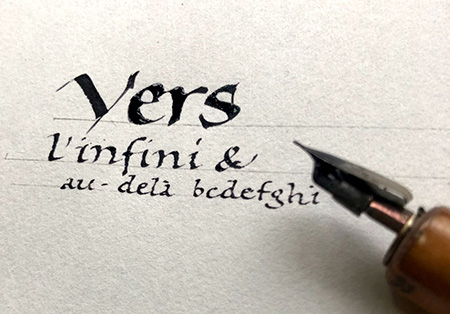 Vers
l'infini &
au-delà bcdefghi